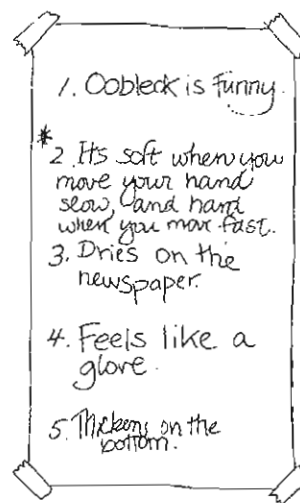 1. Oobleck is funny.
*
2. Its soft when you
move your hand
slow, and hard
when you move fast.
3. Dries on the
newspaper.
4. Feels like a
glove.
5. Thickens on the
bottom.